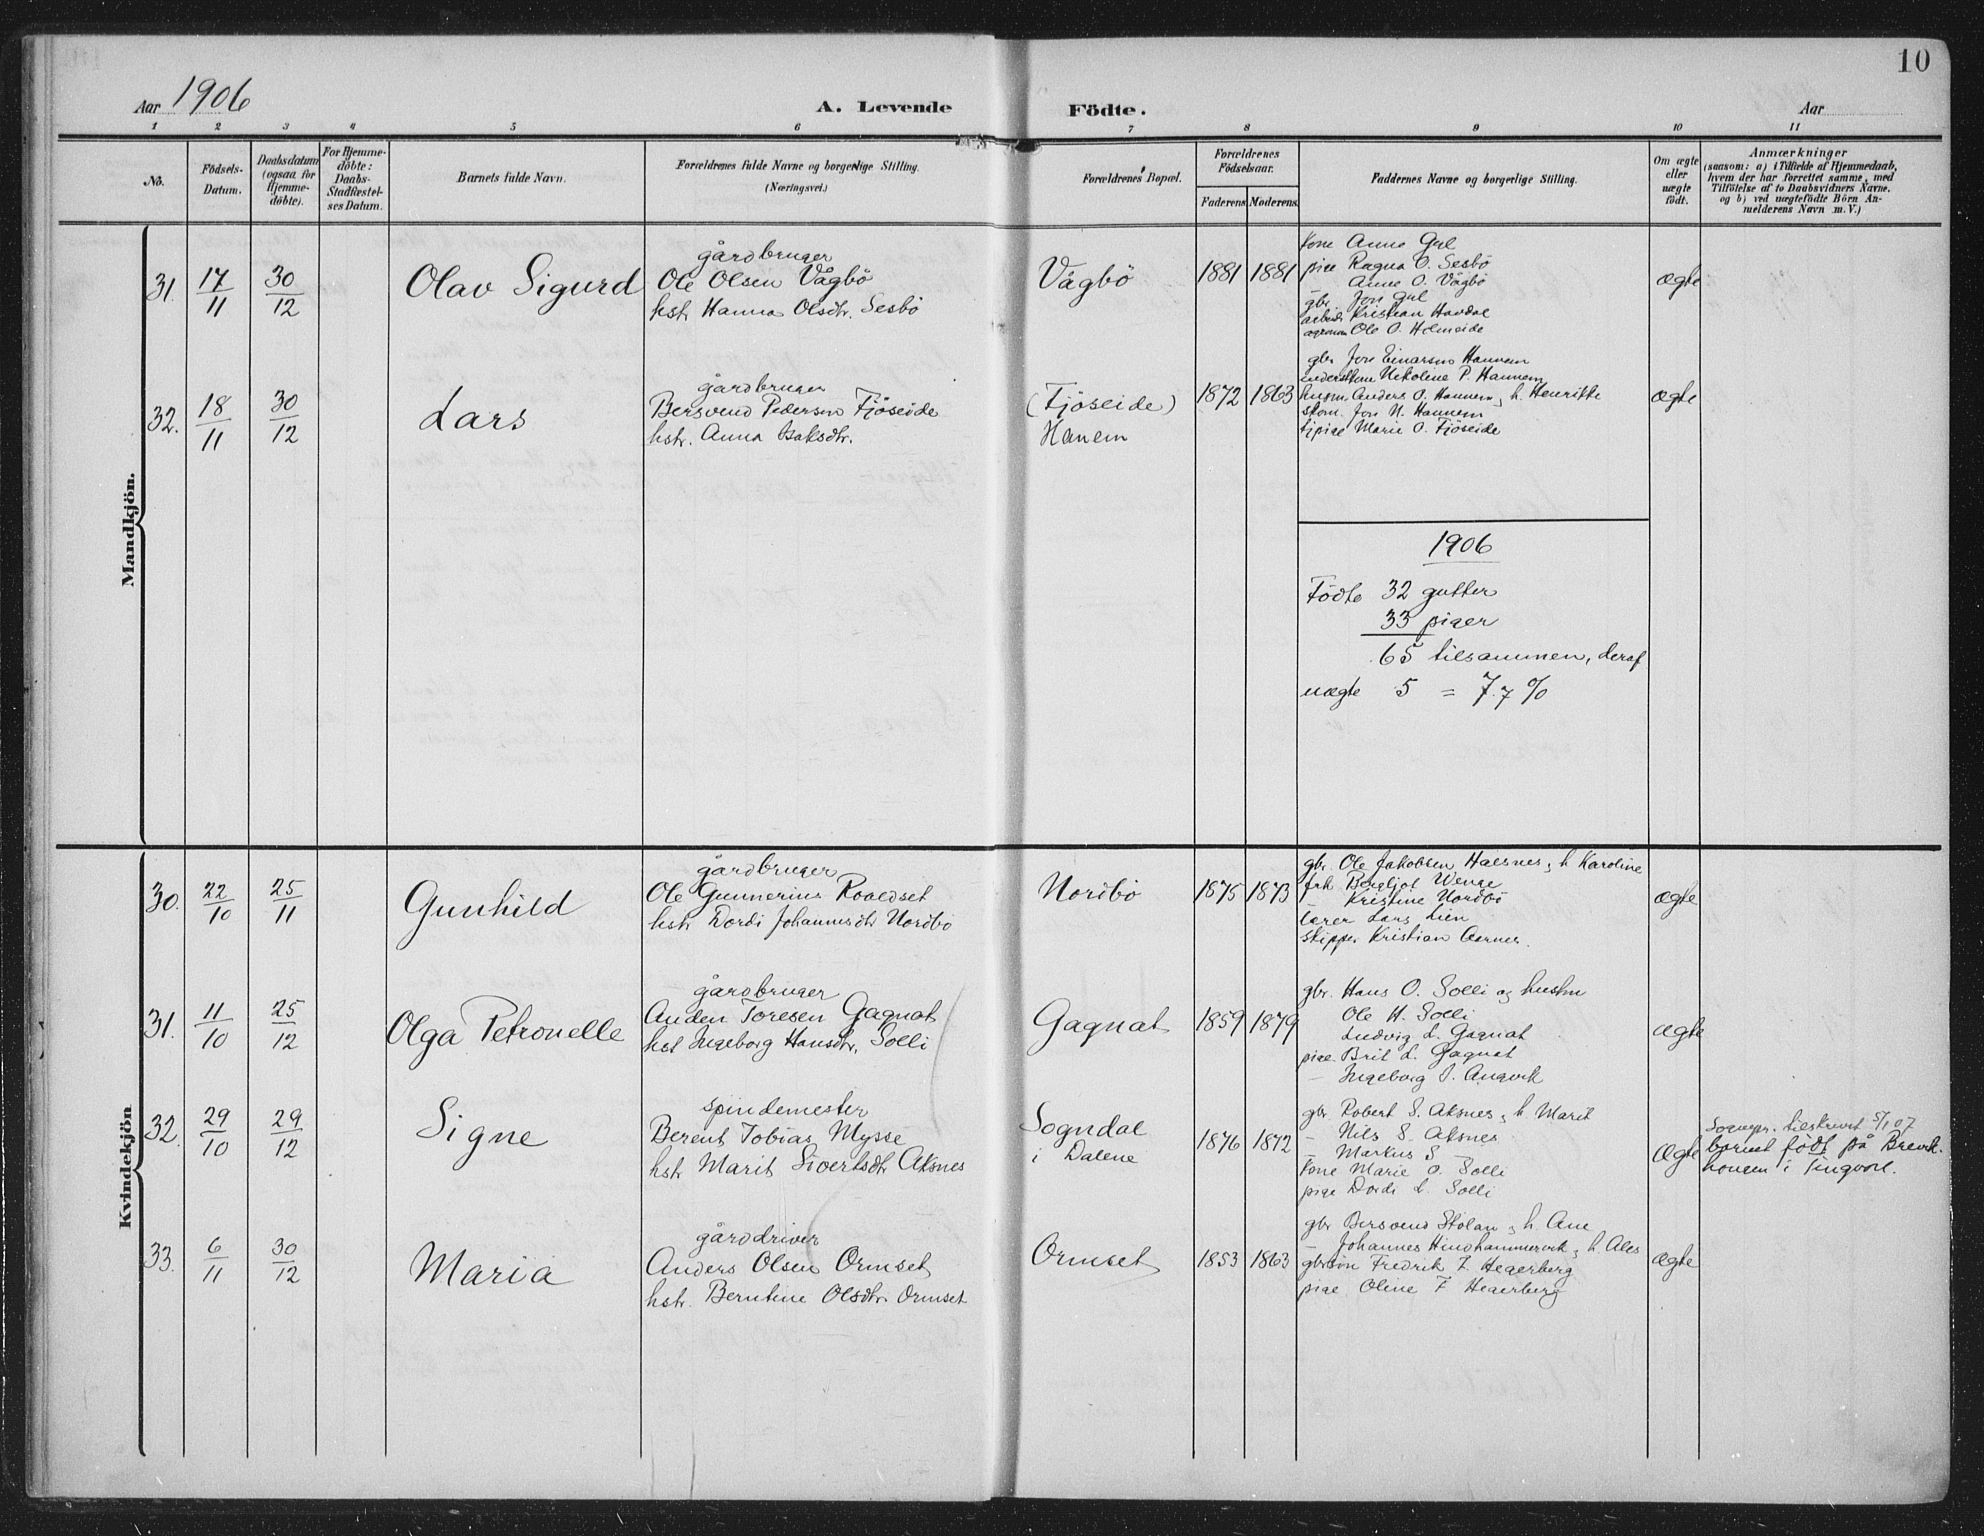 10
Aar 1906
A. Levende Födte.
Aar
1 2 3 4 5 6 7 8 9 10 11
No.
Födsels-Datum.
Daabsdatum (ogsaa for Hjemme-döbte).
For Hjemme-döbte: Daabs-Stadfæstel-ses Datum.
Barnets fulde Navn.
Forældrenes fulde Navne og borgerlige Stilling.
(Næringsvei.)
Forældrenes Bopæl.
Forældrenes Födselsaar.
Faderens Moderens
Faddernes Navne og borgerlige Stilling.
Om ægte eller uægte födt.
Anmærkninger
(saasom: a) i Tilfælde af Hjemmedaab,
hvem der har forrettet samme, med
Tilföielse af to Daabsvidners Navne.
og b) ved uægtefödte Börn An-
melderens Navn m. V.)
Mandkjön.
31. 17/11 30/12 Olav Sigurd
gårdbruger
Ole Olsen Vågbö
hstr Hanna Olsdtr. Sesbö
Vågbö
1881 1881
kone Anne Gul
pige Ragna O. Sesbö
– Anne O. Vågbö
gbr Jon Gul
arbeidr Kristian Havdal
agronom Ole O. Holmeide
ægte
32. 18/11 30/12 Lars
gårdbruger
Bersvend Pedersen Fjöseide
hstr. Anna Isaksdtr.
(Fjöseide)
Hanem
1872 1863
gbr Jon Einarsen Hannem
Nikoline P. Hannem
husm. Anders O. Hannem, h. Henrikke
skom. Jon N. Hannem
tjpige Marie O. Fjöseide
ægte
1906
Födte 32 gutter
33 piger
65 tilsammen, deraf
uægte 5 = 7.7 %
Kvindekjön
30. 22/10 25/11 Gunhild
gårdbruger
Ole Gunnerius Roaldset
hstr Dordi Johannesdtr Nordbö
Nordbö
1875 1873
gbr. Ole Jakobsen Halsnes, h Karoline
frk Bergljot Wenge
– Kristine Nordbö
lærer Lars Lien
skipper Kristian Aarnes.
ægte
31. 11/10 25/12 Olga Petronelle
gårdbruger
Anden Toresen Gagnat
hst Ingeborg Hansdtr. Solli
Gagnat
1859 1879
gbr. Hans O. Solli og hustru
Ole H. Solli
Ludvig L. Gagnat
pige Brit L. Gagnat
– Ingeborg I. Angvik
ægte
32. 29/10 29/12 Signe
spindemester
Berent Tobias Mysse
hst Marit Sivertsdtr Aksnes
Sogndal
i Dalene
1876 1872
gbr Robert S. Aksnes, h. Marit
– Nils S. Aksnes
– Markus S –
kone Marie O. Solli
pige Dordi L. Solli
ægte
Sognepr. tilskrevet 5/1 07
barnet födt på Brevik-
honem i Tingvoll.
33. 6/11 30/12 Maria
gårddriver
Anders Olsen Ormset
hstr. Berntine Olsdtr Ormset
Ormset
1853 1863
gbr Bersvend Stolan, h. Ane
– Johannes Hindhammervik, h. Ales
gbrsön Fredrik F. Hegerberg
pige Oline F Hegerberg
ægte